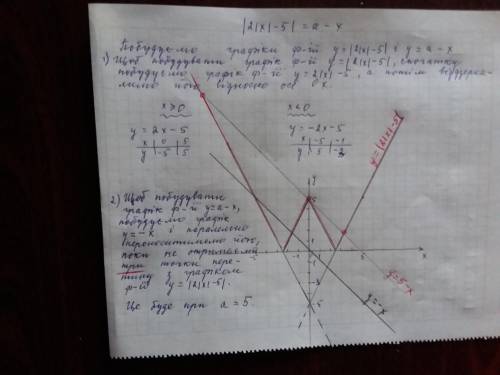 |2|x|-5| = a - x
Побудуємо графіки ф-ій y = |2|x|-5| і y = a - x
1) Щоб побудувати графік ф-ії y = |2|x|-5|, спочатку
побудуємо графік ф-ії y = 2|x|-5, а потім віддзерка-
лимо його відносно осі Ox.
x ⩾ 0
x < 0
y = 2x - 5
y = -2x - 5
x | 0 | 5
y | -5 | 5
x | -5 | -1
y | 5 | -3
2) Щоб побудувати
графік ф-ії y = a-x,
побудуємо графік
y = -x і паралельно
переноситимемо його,
поки не отримаємо
три точки пере-
тину з графіком
ф-ії y = |2|x|-5|.
Це буде при a = 5.
y = |2|x|-5|
y = 5-x
y = -x
y
x
5
1
-1
1
5
-3
-5